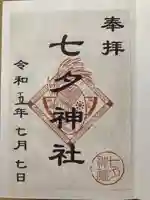 奉拝
七夕神社
令和五年七月七日